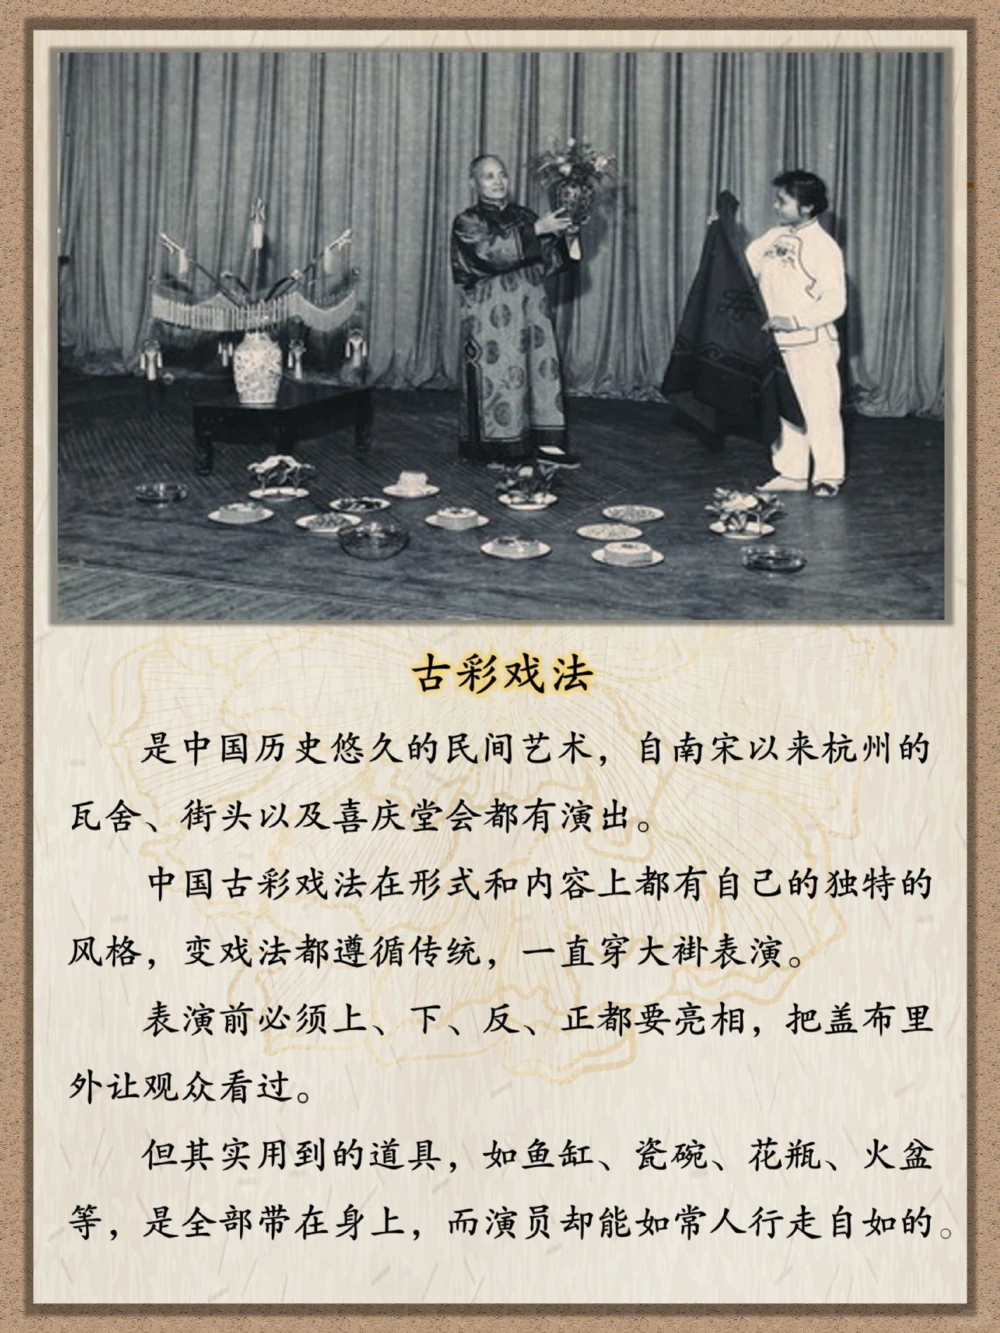 古彩戏法
是中国历史悠久的民间艺术，自南宋以来杭州的
瓦舍、街头以及喜庆堂会都有演出。
中国古彩戏法在形式和内容上都有自己的独特的
风格，变戏法都遵循传统，一直穿大褂表演。
表演前必须上、下、反、正都要亮相，把盖布里
外让观众看过。
但其实用到的道具，如鱼缸、瓷碗、花瓶、火盆
等，是全部带在身上，而演员却能如常人行走自如的。